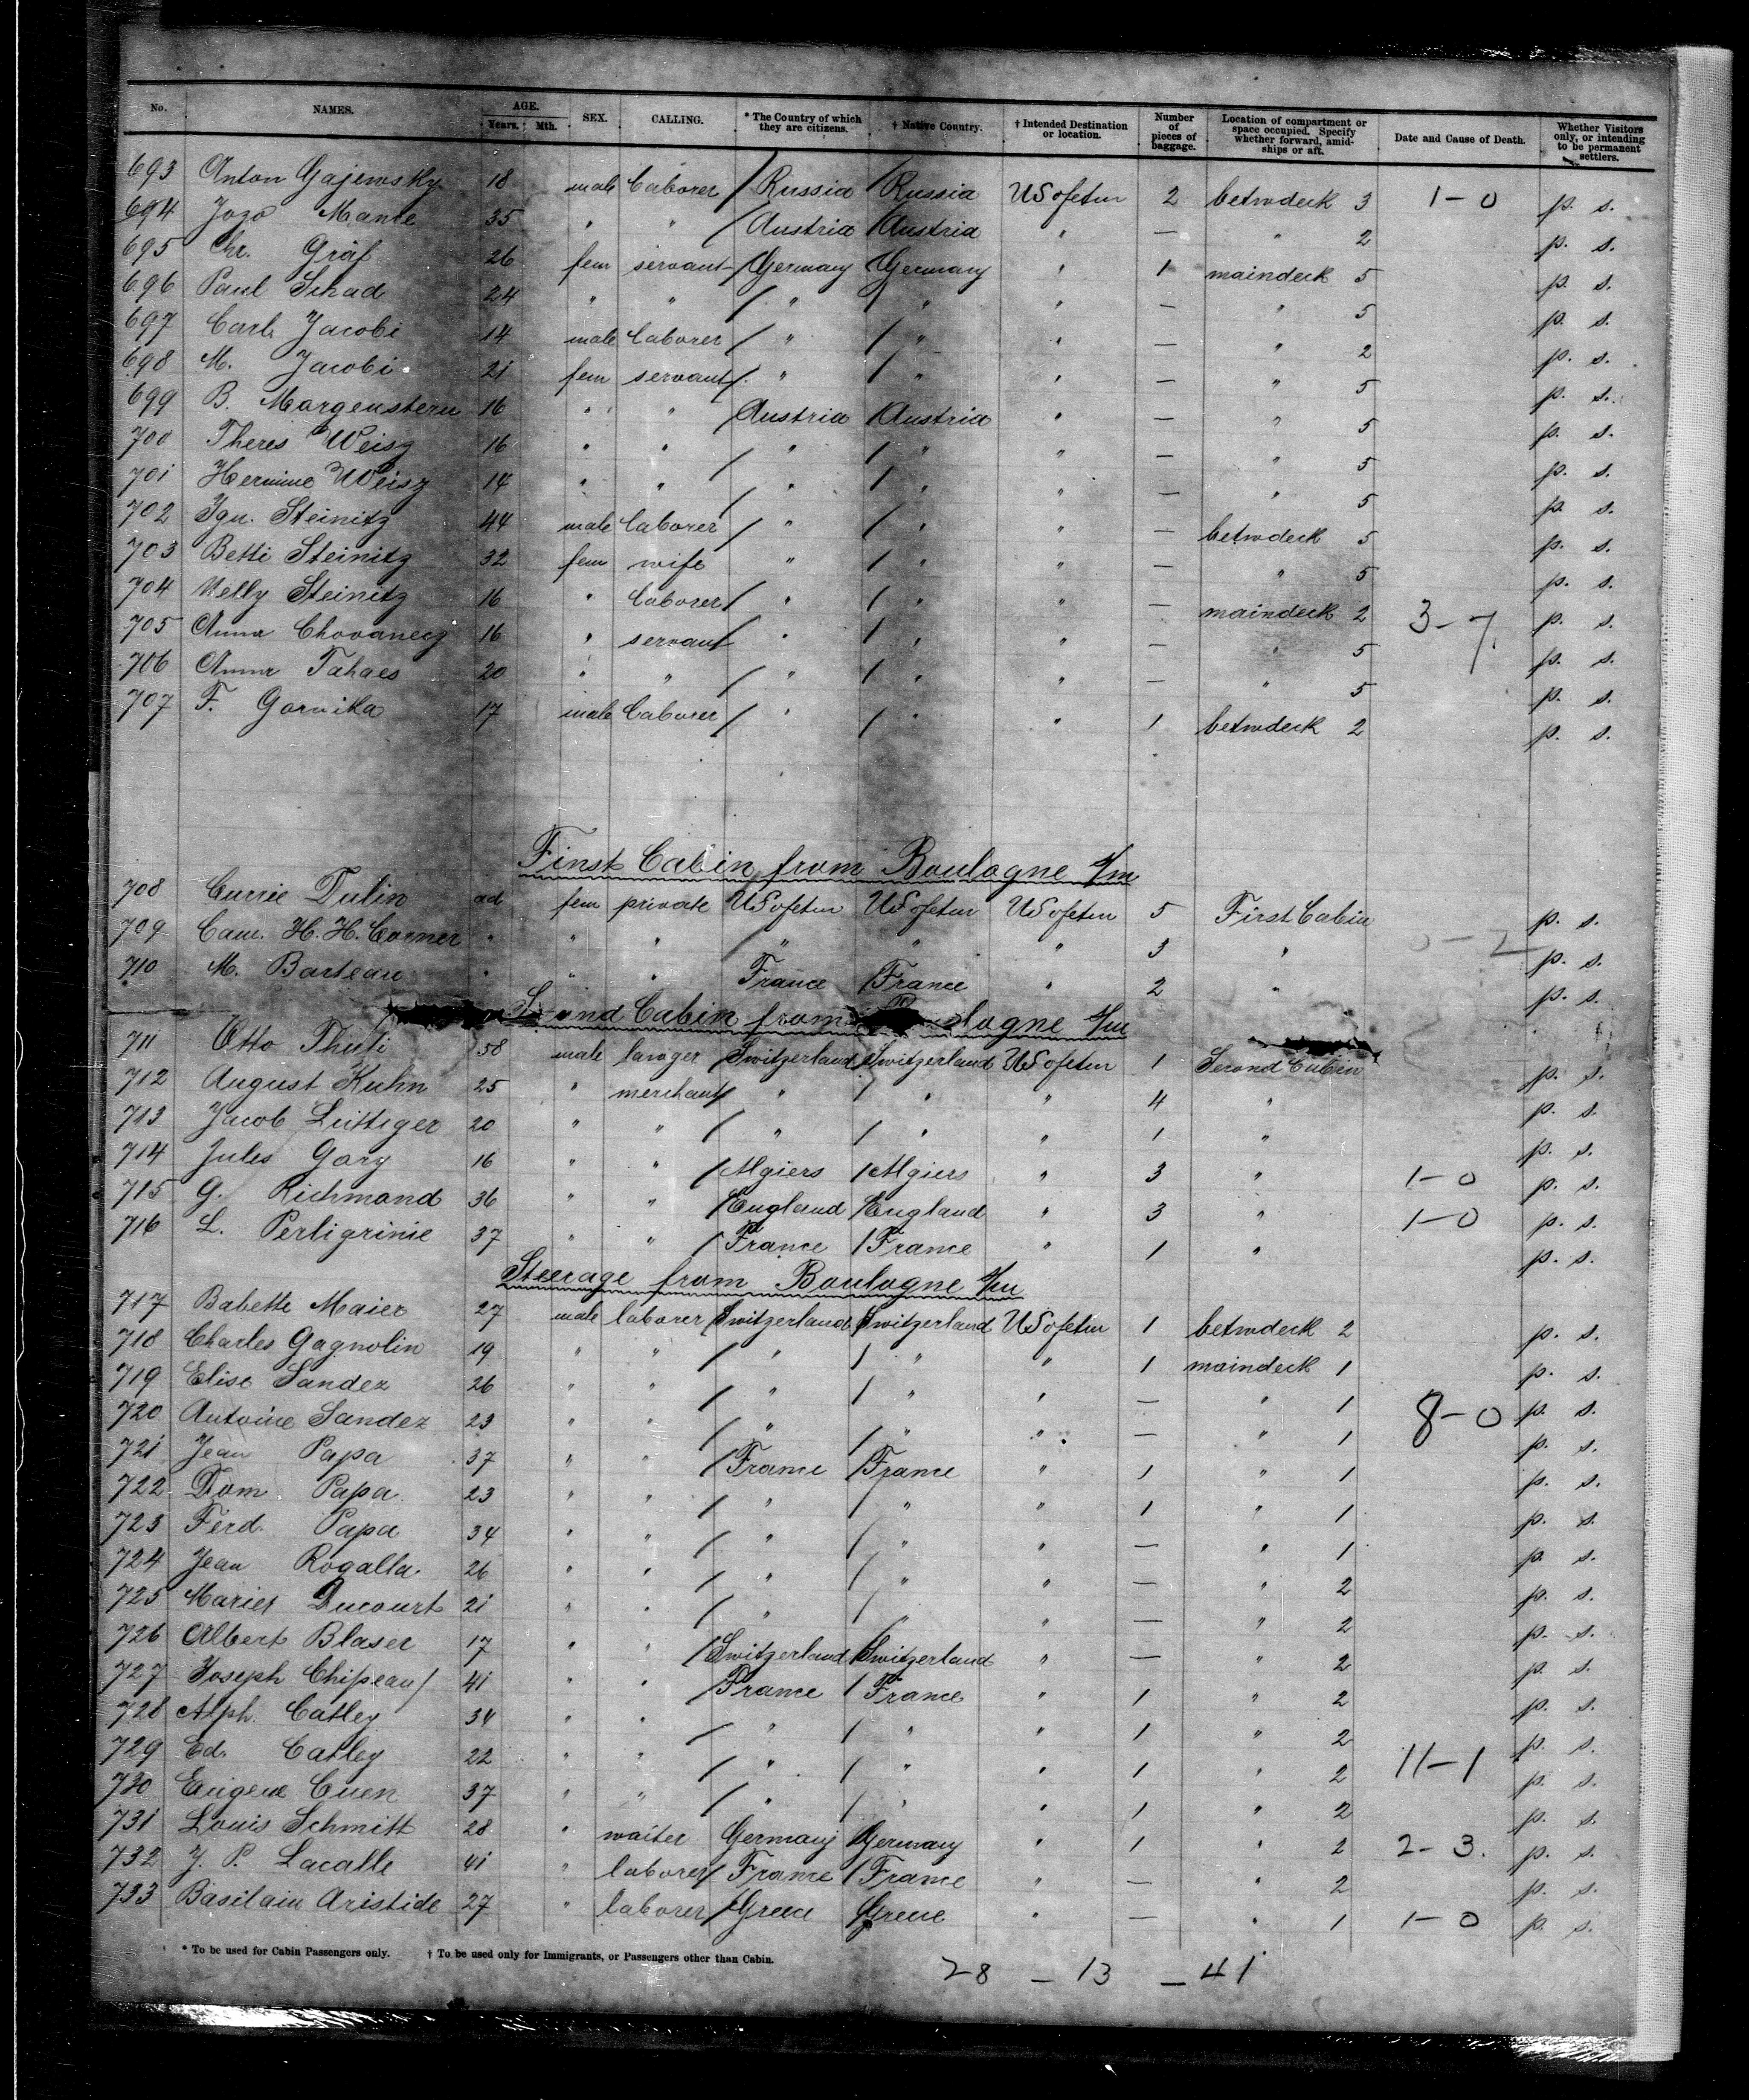 No. NAMES. AGE. Years. Mth. SEX. CALLING. * The Country of which they are citizens. † Native Country. † Intended Destination or location. Number of pieces of baggage. Location of compartment or space occupied. Specify whether forward, amidships or aft. Date and Cause of Death. Whether Visitors only, or intending to be permanent settlers.
693 Anton Gajewsky 18 male laborer / Russia / Russia US ofetm 2 betwdeck 3 1-0 p. s.
694 Jozo Mance 35 " " / Austria / Austria " — " 2 p. s.
695 Chr. Gräf 26 fem servant / Germany / Germany " 1 maindeck 5 p. s.
696 Paul Schad 24 " " / " / " " — " 5 p. s.
697 Carl Jacobi 14 male laborer / " / " " — " 2 p. s.
698 M. Jacobi 21 fem servant / " / " " — " 5 p. s.
699 B. Morgenstern 16 " " Austria / Austria " — " 5 p. s.
700 Theres Weisz 16 " " / " / " " — " 5 p. s.
701 Hermine Weisz 14 " " / " / " " — " 5 p. s.
702 Ign. Steinitz 44 male laborer / " / " " — betwdeck 5 p. s.
703 Betti Steinitz 32 fem wife " / " " — " 5 p. s.
704 Nelly Steinitz 16 " laborer / " / " " — maindeck 2 3-7. p. s.
705 Anna Chovanecz 16 " servant " / " " — " 5 p. s.
706 Anna Tahaes 20 " " / " / " " — " 5 p. s.
707 F. Gorvika 17 male laborer / " / " " 1 betwdeck 2 p. s.
First Cabin from Boulogne s/m
708 Currie Dulin ad fem private US ofetm US ofetm US ofetm 5 First Cabin p. s.
709 Cam. H. H. Corner " " " / " " " 3 " p. s.
710 M. Barteau " " " France / France " 2 " p. s.
Second Cabin from Boulogne s/m
711 Otto Thuli 58 male lawyer Switzerland Switzerland US ofetm 1 Second Cabin p. s.
712 August Kuhn 25 " merchant / " / " " 4 " p. s.
713 Jacob Lüttiger 20 " " / " / " " 1 " p. s.
714 Jules Gory 16 " " / Algiers / Algiers " 3 " 1-0 p. s.
715 G. Richmond 36 " " / England / England " 3 " 1-0 p. s.
716 L. Perligrinie 37 " " / France / France " 1 " p. s.
Steerage from Boulogne s/m
717 Babette Maier 27 male laborer / Switzerland / Switzerland US ofetm 1 betwdeck 2 p. s.
718 Charles Gagnolin 19 " " / " / " " 1 maindeck 1 p. s.
719 Elise Sandez 26 " " / " / " " — " 1 p. s.
720 Antoine Sandez 23 " " / " / " " — " 1 8-0 p. s.
721 Jean Papa 37 " " / France / France " 1 " 1 p. s.
722 Dom. Papa 23 " " / " / " " 1 " 1 p. s.
723 Ferd. Papa 34 " " / " / " " — " 1 p. s.
724 Jean Rogalla 26 " " / " / " " — " 2 p. s.
725 Maries Ducourt 21 " " / " / " " — " 2 p. s.
726 Albert Blaser 17 " " / Switzerland / Switzerland " — " 2 p. s.
727 Joseph Chipeau 41 " " / France / France " 1 " 2 p. s.
728 Alph. Catley 34 " " / " / " " 1 " 2 p. s.
729 Ed. Catley 22 " " / " / " " 1 " 2 11-1 p. s.
730 Eugene Cuen 37 " " / " / " " 1 " 2 p. s.
731 Louis Schmitt 28 " waiter Germany Germany " 1 " 2 2-3. p. s.
732 J. P. Lacalle 41 " laborer / France / France " — " 2 p. s.
733 Basilain Aristide 27 " laborer / Greece Greece " — " 1 1-0 p. s.
* To be used for Cabin Passengers only. † To be used only for Immigrants, or Passengers other than Cabin.
28 — 13 — 41